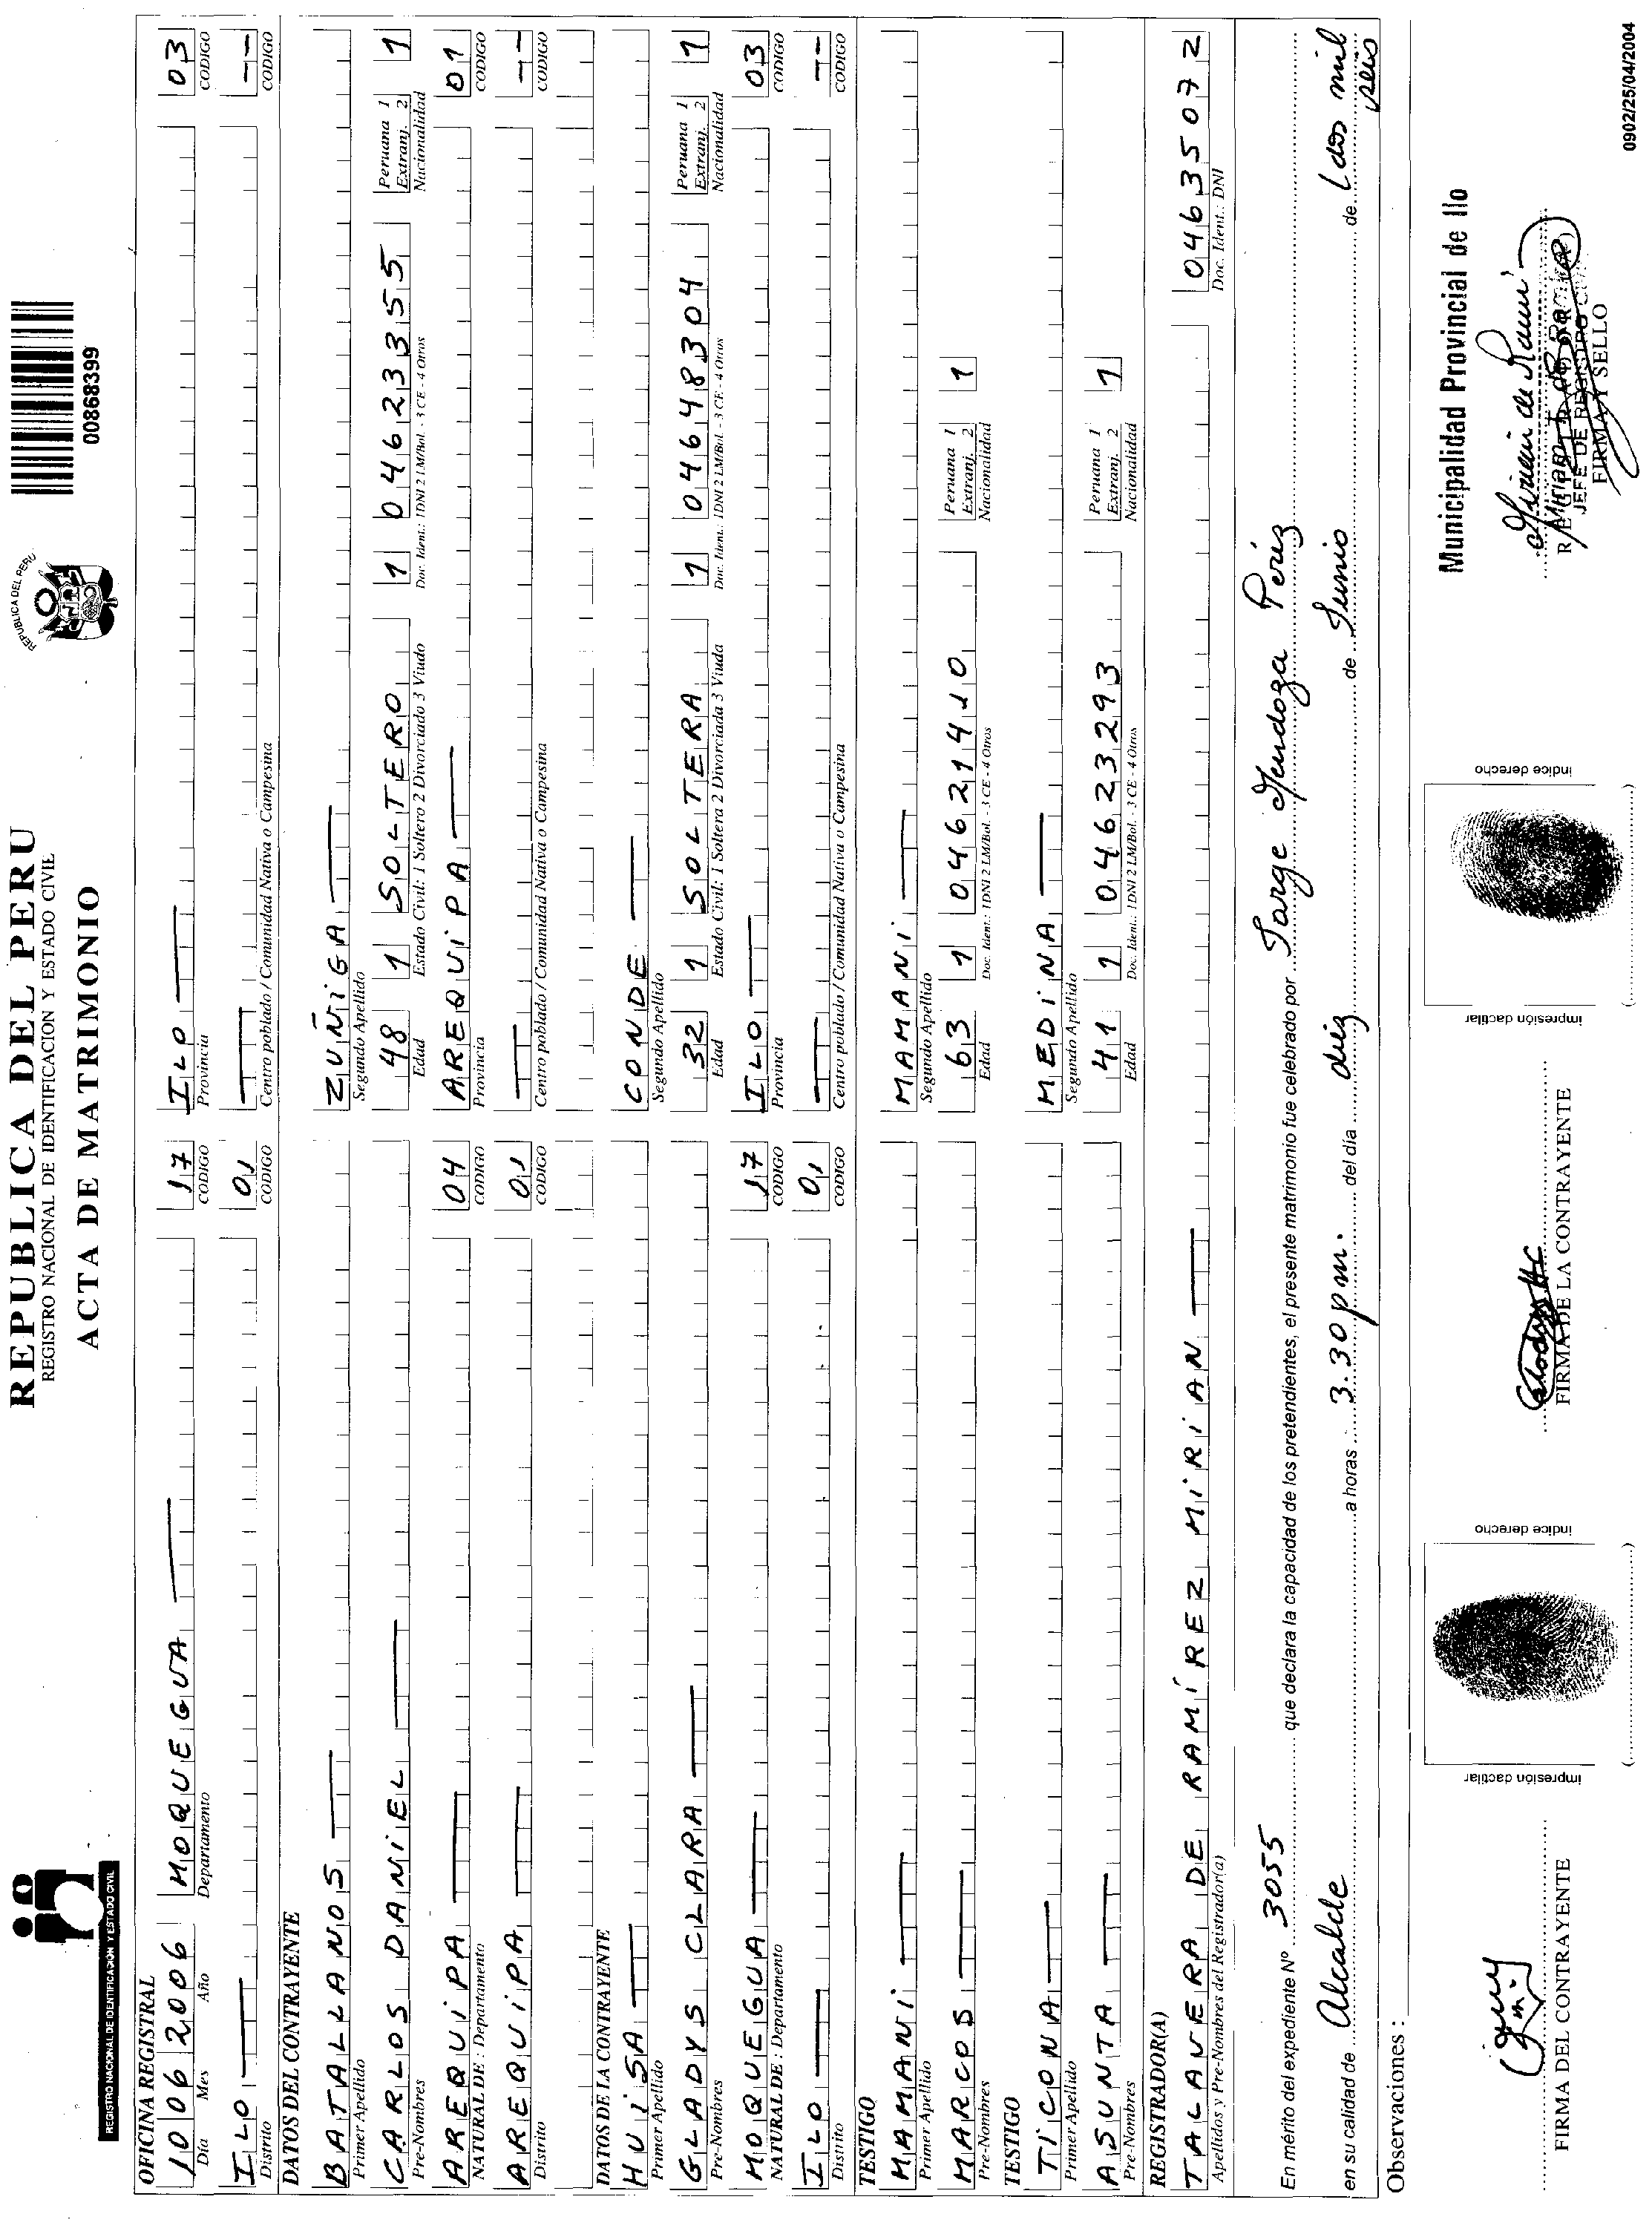 REPUBLICA DEL PERU
REGISTRO NACIONAL DE IDENTIFICACION Y ESTADO CIVIL
ACTA DE MATRIMONIO
REGISTRO NACIONAL DE IDENTIFICACIÓN Y ESTADO CIVIL
REPUBLICA DEL PERU
00868399
OFICINA REGISTRAL
10 06 2006 MOQUEGUA 17 ILO 03
Día Mes Año Departamento CODIGO Provincia CODIGO
ILO 01 --
Distrito CODIGO Centro poblado / Comunidad Nativa o Campesina CODIGO
DATOS DEL CONTRAYENTE
BATALLANOS ZUÑIGA
Primer Apellido Segundo Apellido
CARLOS DANIEL 48 1 SOLTERO 1 04623355 Peruana 1 Extranj. 2 1
Pre-Nombres Edad Estado Civil: 1 Soltero 2 Divorciado 3 Viudo Doc. Ident.: 1DNI 2 LM/Bol. - 3 CE - 4 Otros Nacionalidad
AREQUIPA 04 AREQUIPA 01
NATURAL DE : Departamento CODIGO Provincia CODIGO
AREQUIPA 01 --
Distrito CODIGO Centro poblado / Comunidad Nativa o Campesina CODIGO
DATOS DE LA CONTRAYENTE
HUISA CONDE
Primer Apellido Segundo Apellido
GLADYS CLARA 32 1 SOLTERA 1 04648304 Peruana 1 Extranj. 2 1
Pre-Nombres Edad Estado Civil: 1 Soltera 2 Divorciada 3 Viuda Doc. Ident.: 1DNI 2 LM/Bol. - 3 CE - 4 Otros Nacionalidad
MOQUEGUA 17 ILO 03
NATURAL DE : Departamento CODIGO Provincia CODIGO
ILO 01 --
Distrito CODIGO Centro poblado / Comunidad Nativa o Campesina CODIGO
TESTIGO
MAMANI MAMANI
Primer Apellido Segundo Apellido
MARCOS 63 1 04621410 Peruana 1 Extranj. 2 1
Pre-Nombres Edad Doc. Ident.: 1DNI 2 LM/Bol. - 3 CE - 4 Otros Nacionalidad
TESTIGO
TICONA MEDINA
Primer Apellido Segundo Apellido
ASUNTA 41 1 04623293 Peruana 1 Extranj. 2 1
Pre-Nombres Edad Doc. Ident. 1DNI 2 LM/Bol. - 3 CE - 4 Otros Nacionalidad
REGISTRADOR(A)
TALAVERA DE RAMÍREZ MIRIAN 04635072
Apellidos y Pre-Nombres del Registrador(a) Doc. Ident.: DNI
En mérito del expediente Nº 3055 que declara la capacidad de los pretendientes, el presente matrimonio fue celebrado por Jorge Mendoza Pérez
en su calidad de Alcalde a horas 3.30 pm. del día diez de Junio de (dos mil seis
Observaciones :
Municipalidad Provincial de Ilo
impresión dactilar índice derecho
impresión dactilar índice derecho
JEFE DE REGISTRO CIVIL
FIRMA DEL CONTRAYENTE FIRMA DE LA CONTRAYENTE FIRMA Y SELLO
0902/25/04/2004